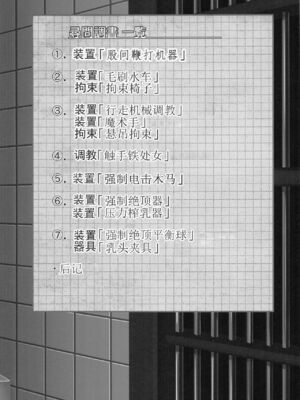 尋問調書 一覧
①. 装置「股间鞭打机器」
②. 装置「毛刷水车」
拘束「拘束椅子」
③. 装置「行走机械调教」
装置「魔术手」
拘束「悬吊拘束」
④. 调教「触手铁处女」
⑤. 装置「强制电击木马」
⑥. 装置「强制绝顶器」
装置「压力榨乳器」
⑦. 装置「强制绝顶平衡球」
器具「乳头夹具」
·后记